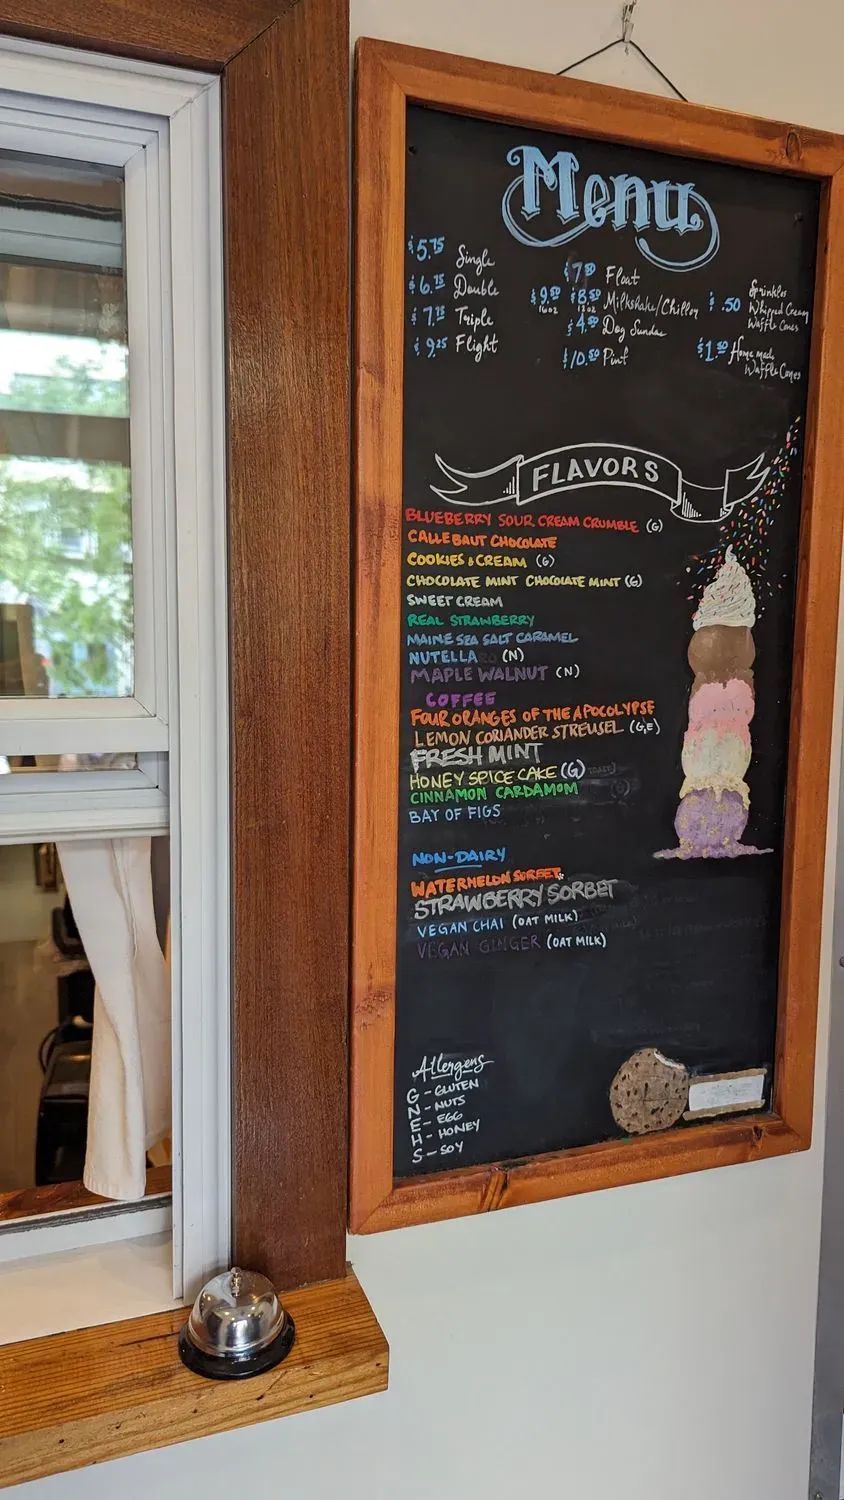 Menu
$5.75 Single
$6.75 Double
$7.75 Triple
$9.25 Flight
$7.50 Float
$9.50 16oz $8.50 12oz Milkshake/Chiller
$4.50 Dog Sundae
$10.50 Pint
$.50 Sprinkles
Whipped Cream
Waffle Cones
$1.50 Homemade
Waffle Cones
FLAVORS
BLUEBERRY SOUR CREAM CRUMBLE (G)
CALLEBAUT CHOCOLATE
COOKIES & CREAM (G)
CHOCOLATE MINT CHOCOLATE MINT (G)
SWEET CREAM
REAL STRAWBERRY
MAINE SEA SALT CARAMEL
NUTELLA (N)
MAPLE WALNUT (N)
COFFEE
FOUR ORANGES OF THE APOCOLYPSE
LEMON CORIANDER STREUSEL (G,E)
FRESH MINT
HONEY SPICE CAKE (G)
CINNAMON CARDAMOM
BAY OF FIGS
NON-DAIRY
WATERMELON SORBET
STRAWBERRY SORBET
VEGAN CHAI (OAT MILK)
VEGAN GINGER (OAT MILK)
Allergens
G - GLUTEN
N - NUTS
E - EGG
H - HONEY
S - SOY